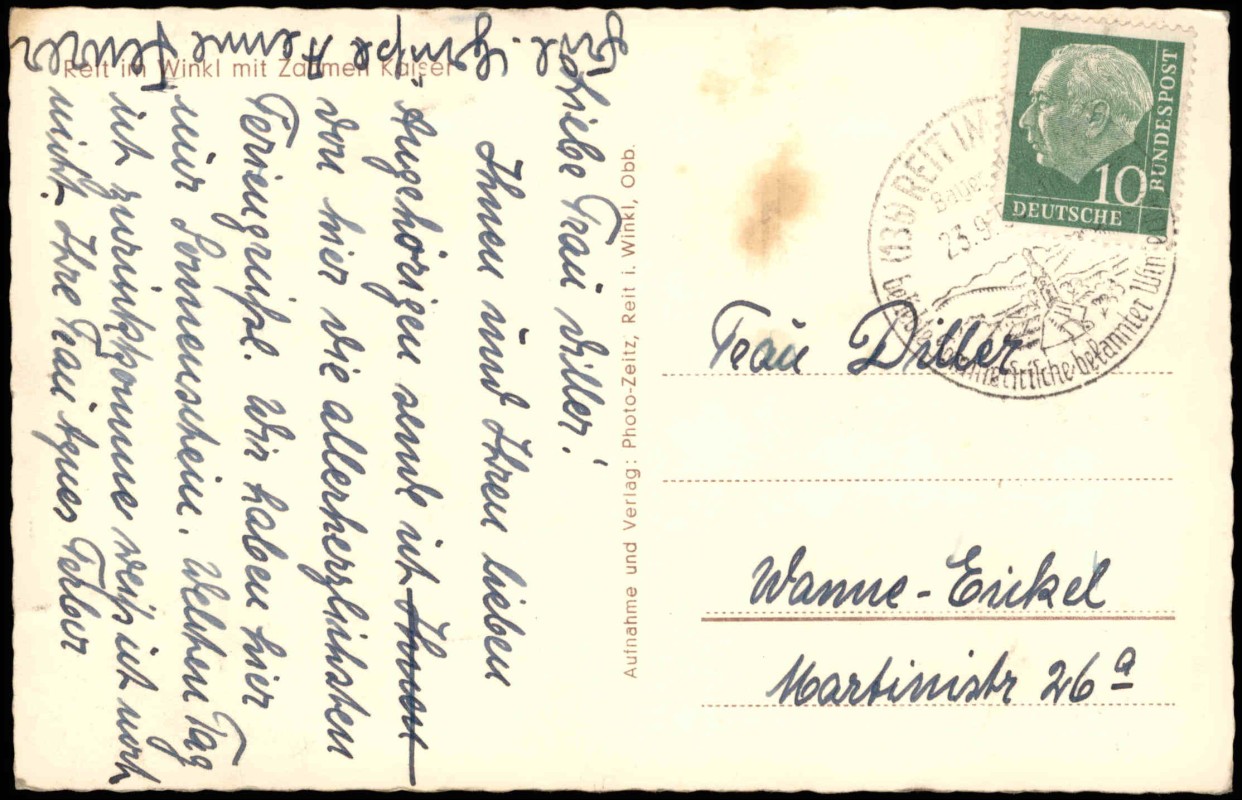 Reit im Winkl mit Zahmen Kaiser
Liebe Frau Diller!
Ihnen und Ihren lieben
Angehörigen sende ich Ihnen
von hier die allerherzlichsten
Feriengrüsse. Wir haben hier
nür Sonnenschein. Welchen Tag
ich zurückkomme weiß ich noch
nicht. Ihre Frau Agnes Ferber
Grüße Aenne
Aufnahme und Verlag: Photo-Zeitz, Reit i. Winkl, Obb.
10
BUNDESPOST
DEUTSCHE
(13b) REIT IM
23.9.
bekannter Win
Frau Diller
Wanne-Eickel
Martinistr 26a